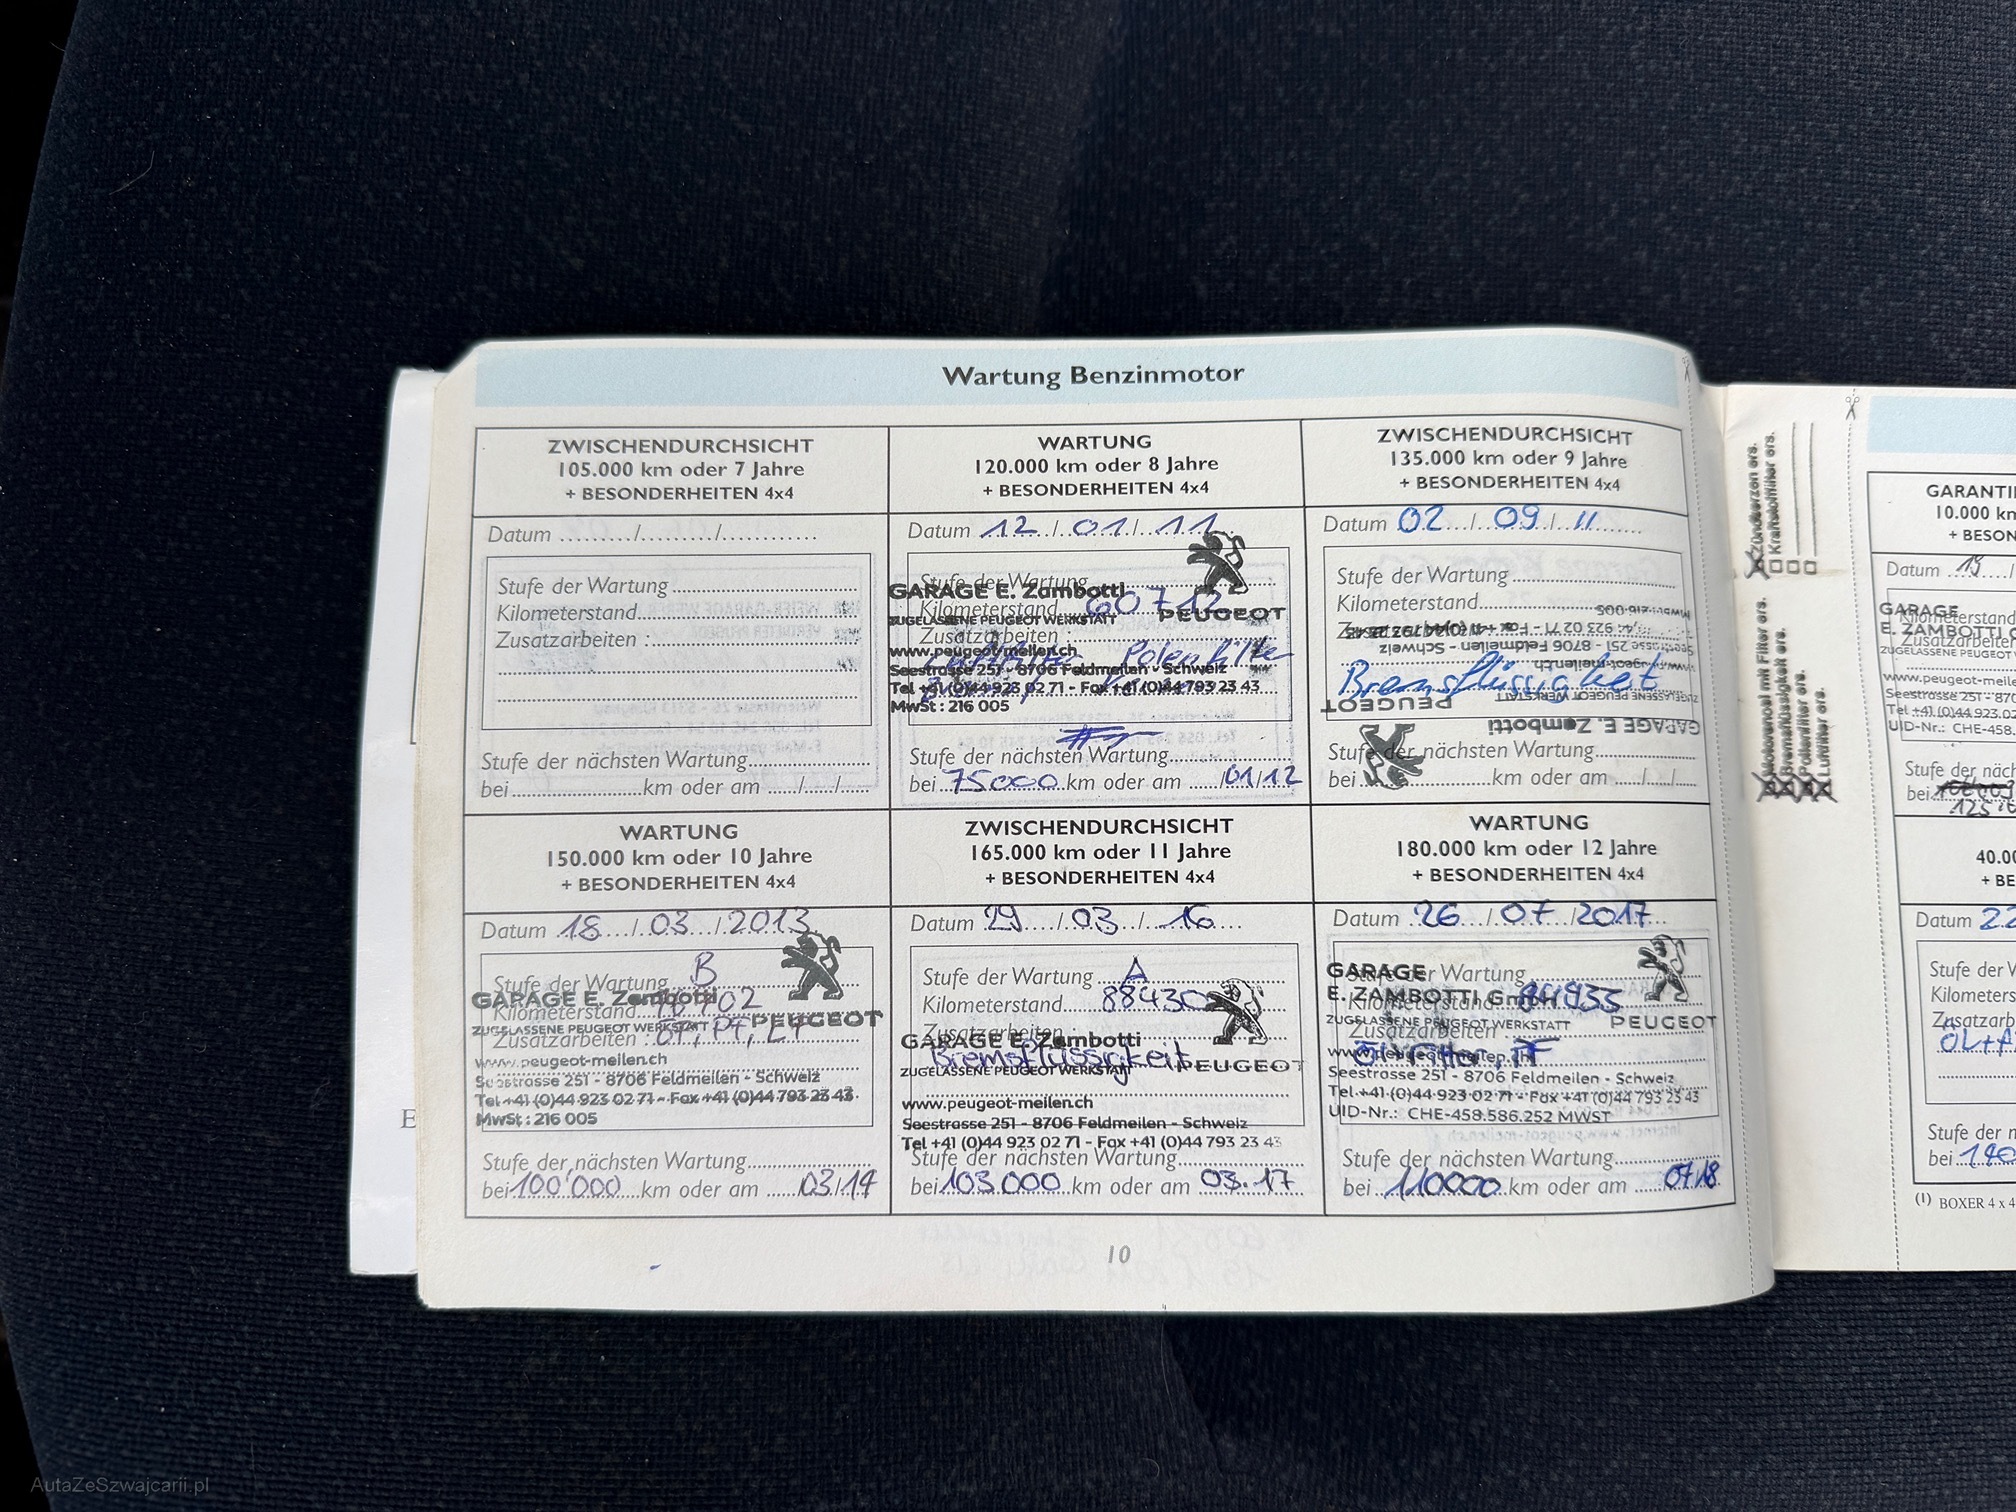 Wartung Benzinmotor
ZWISCHENDURCHSICHT
105.000 km oder 7 Jahre
+ BESONDERHEITEN 4x4
Datum ........./............/............
Stufe der Wartung
Kilometerstand
Zusatzarbeiten :
Stufe der nächsten Wartung
bei km oder am ....../....../......
WARTUNG
120.000 km oder 8 Jahre
+ BESONDERHEITEN 4x4
Datum 12 / 01 / 11
Stufe der Wartung
GARAGE E. Zambotti
Kilometerstand 60712
PEUGEOT
ZUGELASSENE PEUGEOT WERKSTATT
Zusatzarbeiten :
www.peugeot-meilen.ch
Polenfilter
Seestrasse 251 - 8706 Feldmeilen - Schweiz
Tel +41 (0)44 923 02 71 - Fax +41 (0)44 793 23 43
MwSt : 216 005
Stufe der nächsten Wartung
bei 75000 km oder am 01/12
ZWISCHENDURCHSICHT
135.000 km oder 9 Jahre
+ BESONDERHEITEN 4x4
Datum 02 / 09 / 11
Stufe der Wartung
Kilometerstand
MwSt : 216 005
Seestrasse 251 - 8706 Feldmeilen - Schweiz
www.peugeot-meilen.ch
Bremsflüssigkeit
ZUGELASSENE PEUGEOT WERKSTATT
PEUGEOT
GARAGE E. Zambotti
Stufe der nächsten Wartung
bei km oder am ....../....../......
WARTUNG
150.000 km oder 10 Jahre
+ BESONDERHEITEN 4x4
Datum 18 / 03 / 2013
Stufe der Wartung B
GARAGE E. Zambotti
Kilometerstand
PEUGEOT
ZUGELASSENE PEUGEOT WERKSTATT
Zusatzarbeiten :
www.peugeot-meilen.ch
Seestrasse 251 - 8706 Feldmeilen - Schweiz
Tel +41 (0)44 923 02 71 - Fax +41 (0)44 793 23 43
MwSt : 216 005
Stufe der nächsten Wartung
bei 100'000 km oder am 03/14
ZWISCHENDURCHSICHT
165.000 km oder 11 Jahre
+ BESONDERHEITEN 4x4
Datum 29 / 03 / 16
Stufe der Wartung A
Kilometerstand 88430
Zusatzarbeiten :
GARAGE E. Zambotti
Bremsflüssigkeit
PEUGEOT
ZUGELASSENE PEUGEOT WERKSTATT
www.peugeot-meilen.ch
Seestrasse 251 - 8706 Feldmeilen - Schweiz
Tel +41 (0)44 923 02 71 - Fax +41 (0)44 793 23 43
Stufe der nächsten Wartung
bei 103.000 km oder am 03.17
WARTUNG
180.000 km oder 12 Jahre
+ BESONDERHEITEN 4x4
Datum 26 / 07 / 2017
Stufe der Wartung
GARAGE
E. ZAMBOTTI GmbH
Kilometerstand
PEUGEOT
ZUGELASSENE PEUGEOT WERKSTATT
Zusatzarbeiten
www.peugeot-meilen.ch
Seestrasse 251 - 8706 Feldmeilen - Schweiz
Tel.+41 (0)44 923 02 71 - Fax +41 (0)44 793 23 43
UID-Nr.: CHE-458.586.252 MWST
Stufe der nächsten Wartung
bei 110000 km oder am 07/18
10
Zündkerzen ers.
Kraftstofffilter ers.
Motorenoel mit Filter ers.
Bremsflüssigkeit ers.
Polenfilter ers.
Luftfilter ers.
10.000 km
Datum 15
GARAGE
Kilometerstand
E. ZAMBOTTI
Zusatzarbeiten
ZUGELASSENE PEUGEOT
www.peugeot-meilen
Seestrasse 251 - 870
UID-Nr.: CHE-458.
bei
Datum 22
Stufe der
Kilometerstand
bei
(1) BOXER 4 x 4
AutaZeSzwajcarii.pl